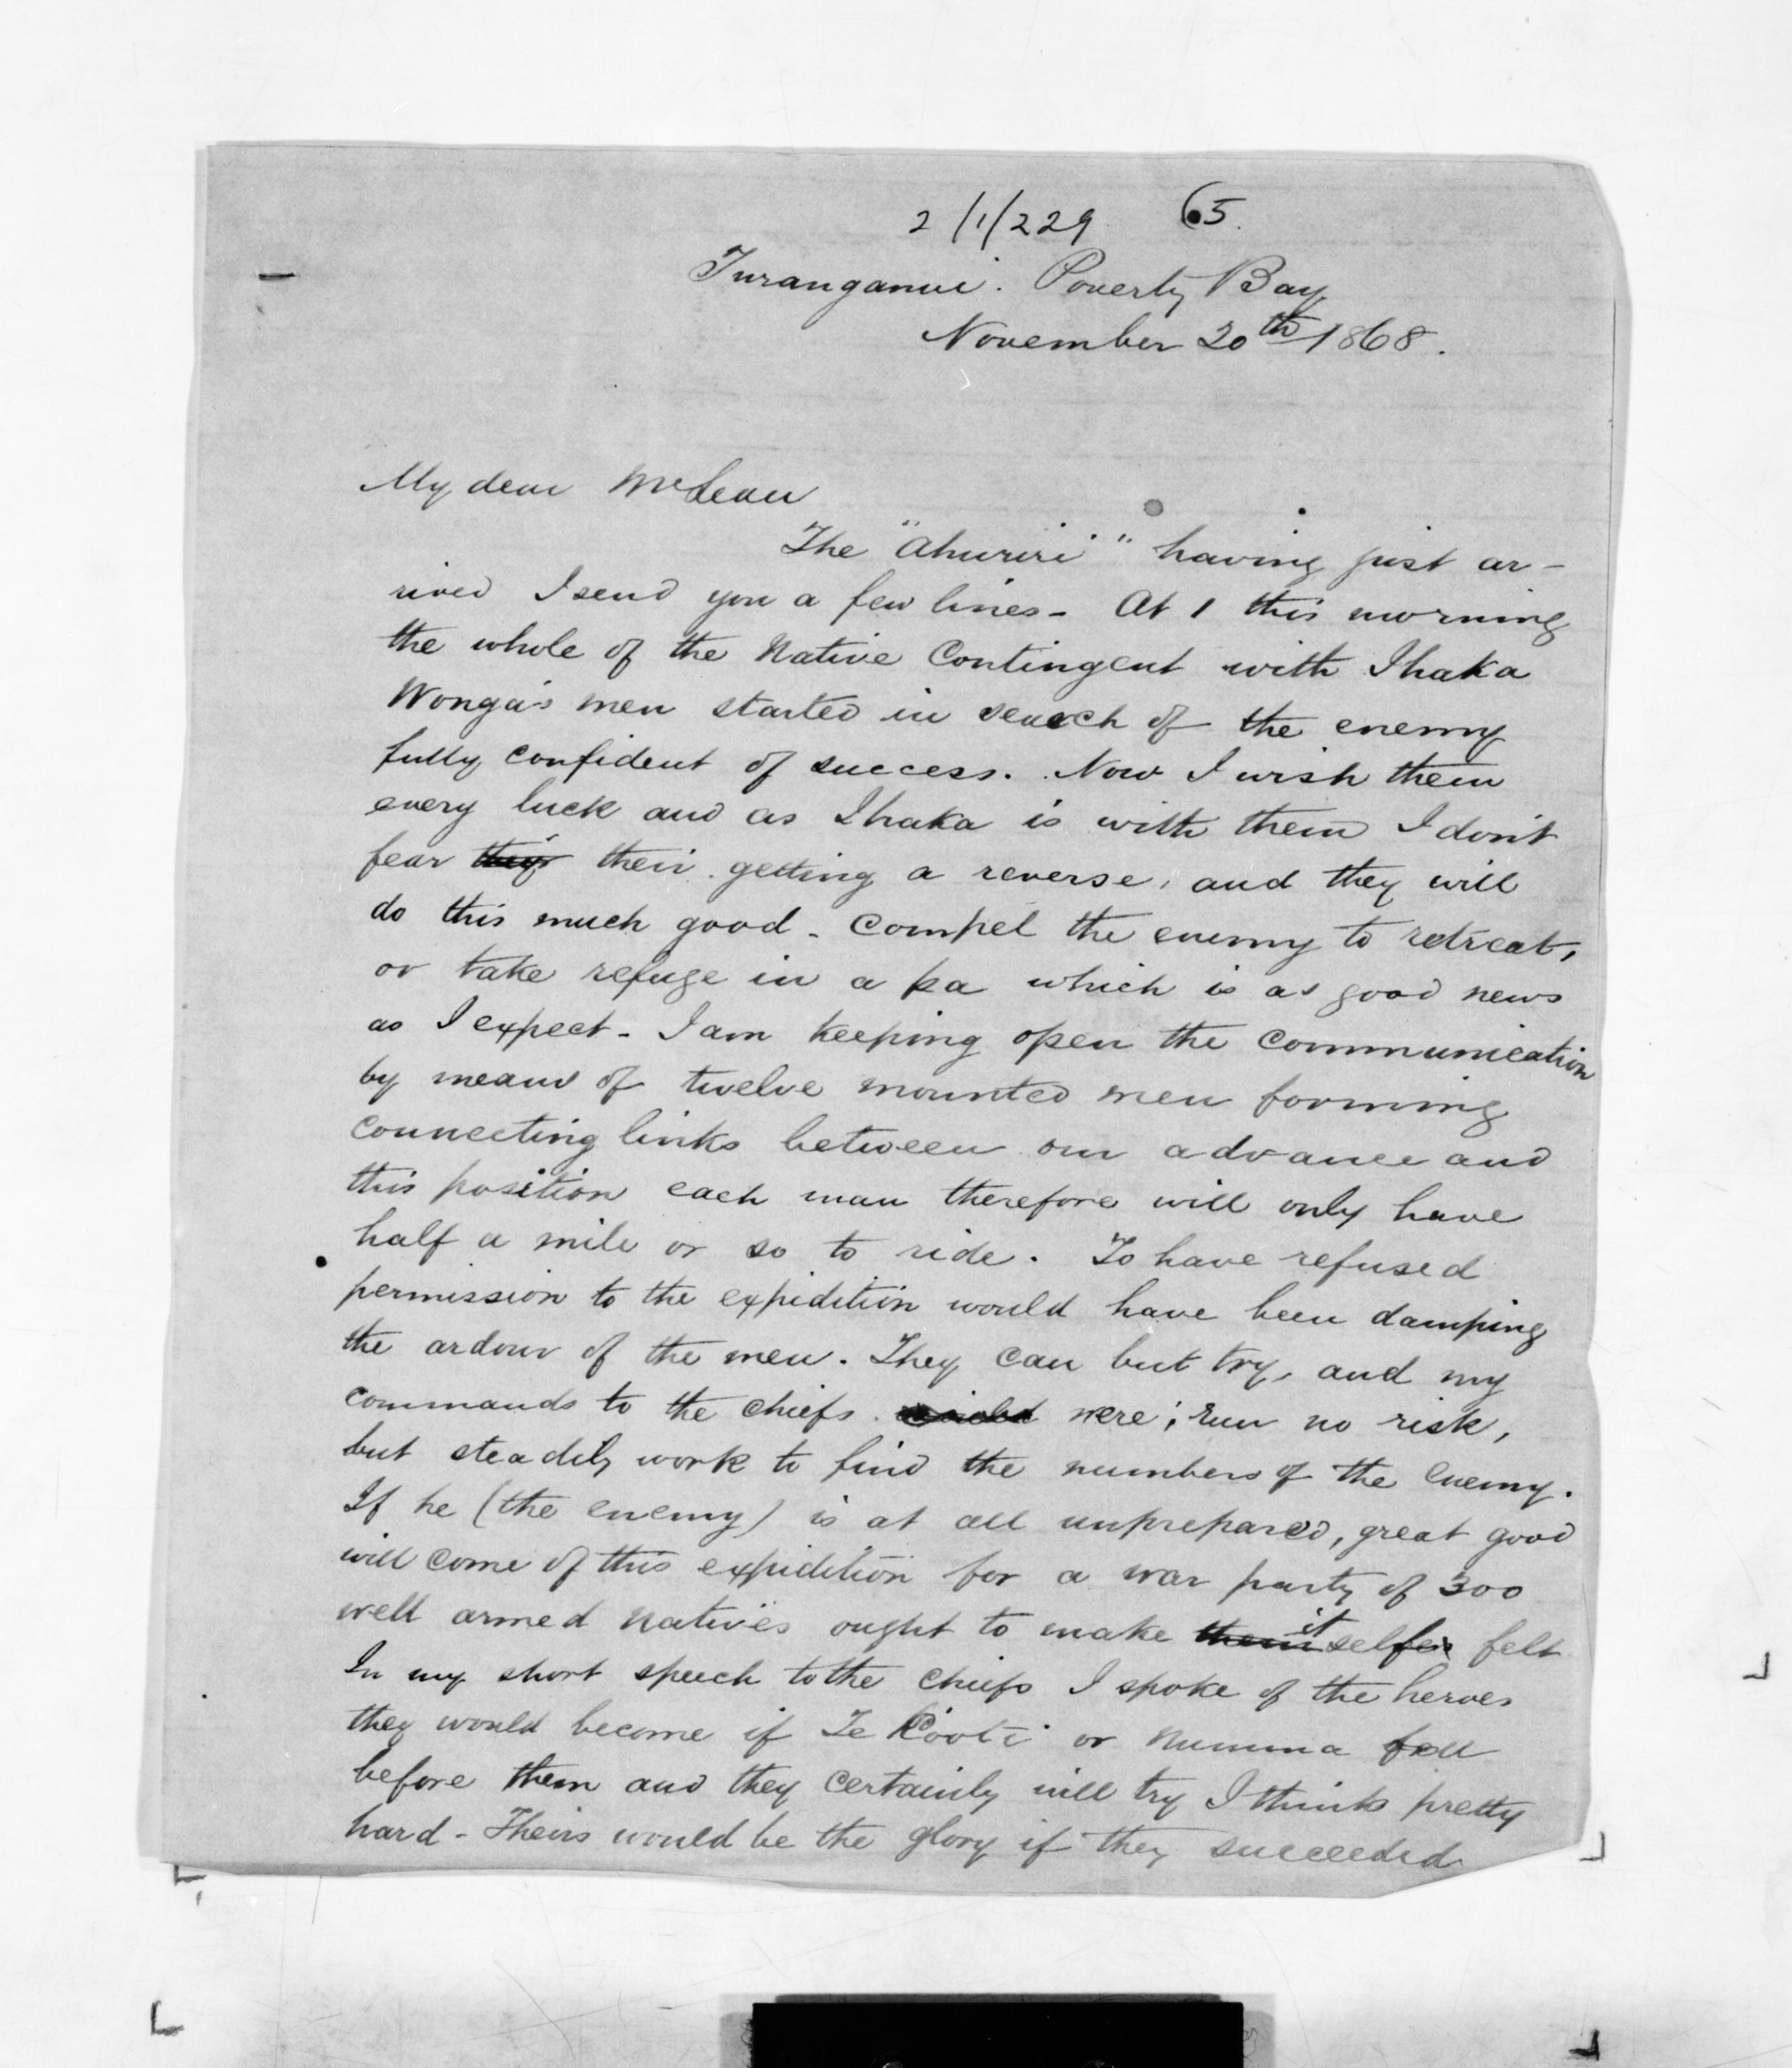 2/1/229 65.
Turanganui. Poverty Bay
November 20th 1868.
My dear McLean
The "Ahuriri" having just ar-
rived I send you a few lines - At 1 this morning
the whole of the Native Contingent with Ihaka
Wonga's men started in search of the enemy
fully confident of success. Now I wish them
every luck and as Ihaka is with them I don't
fear their getting a reverse, and they will
do this much good - compel the enemy to retreat,
or take refuge in a pa which is as good news
as I expect - I am keeping open the communication
by means of twelve mounted men forming
connecting links between our advance and
this position each man therefore will only have
half a mile or so to ride. To have refused
permission to the expidition would have been damping
the ardour of the men. They can but try, and my
commands to the chiefs were; run no risk,
but steadily work to find the numbers of the Enemy.
If he (the enemy) is at all unprepared, great good
will come of this expidition for a war party of 300
well armed natives ought to make itself felt
In my short speech to the chiefs I spoke of the heroes
they would become if Te Kooti or Numma fell
before them and they certainly will try I think pretty
hard - Theirs would be the glory if they succeeded